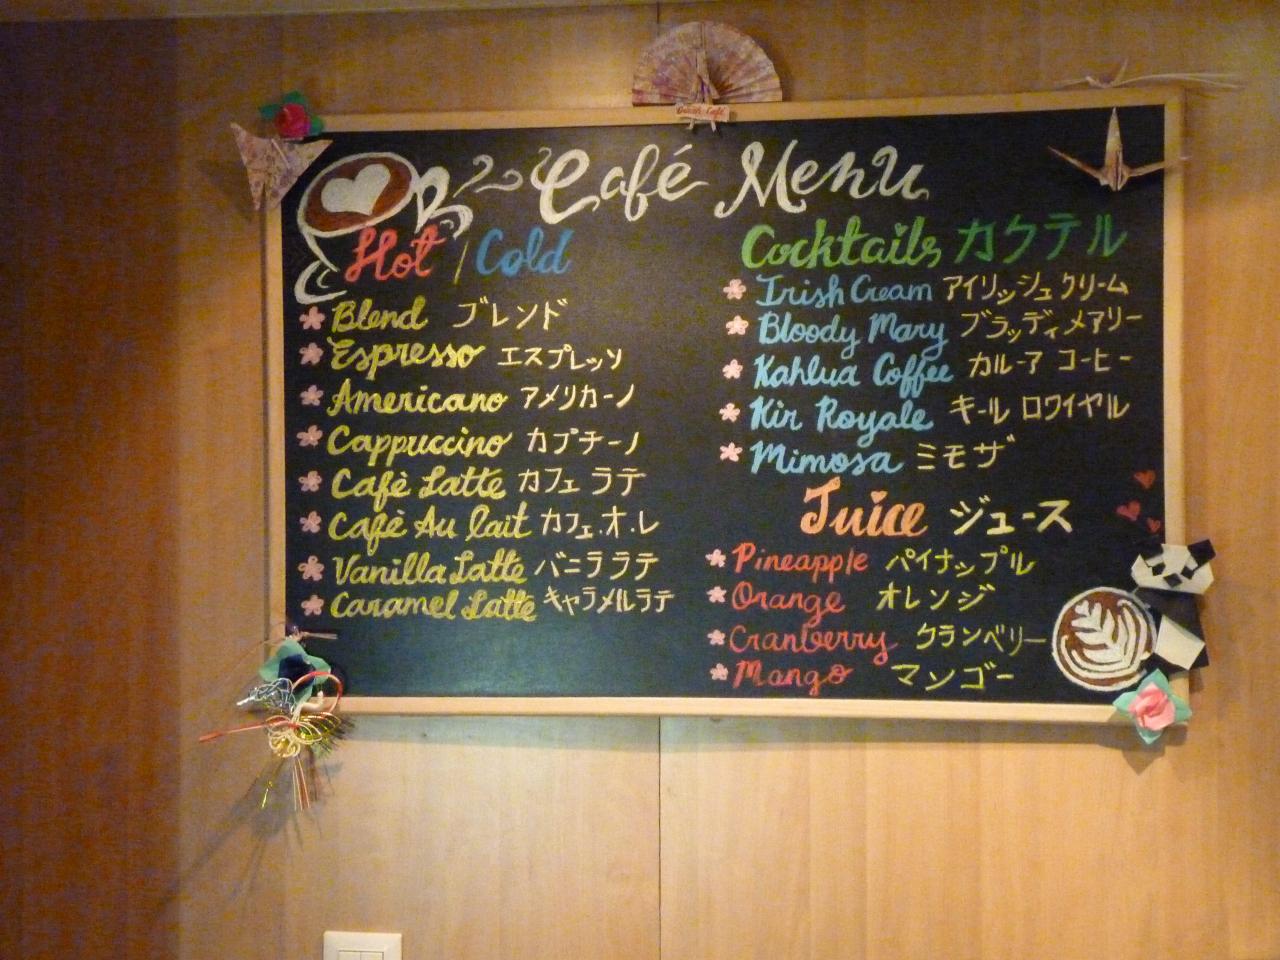 Café Menu
Hot / Cold
Blend ブレンド
Espresso エスプレッソ
Americano アメリカーノ
Cappuccino カプチーノ
Cafè Latte カフェ ラテ
Cafè Au lait カフェ.オ.レ
Vanilla Latte バニララテ
Caramel Latte キャラメルラテ
Cocktails カクテル
Irish Cream アイリッシュクリーム
Bloody Mary ブラッディメアリー
Kahlua Coffee カルーア コーヒー
Kir Royale キール ロワイヤル
Mimosa ミモザ
Juice ジュース
Pineapple パイナップル
Orange オレンジ
Cranberry クランベリー
Mango マンゴー